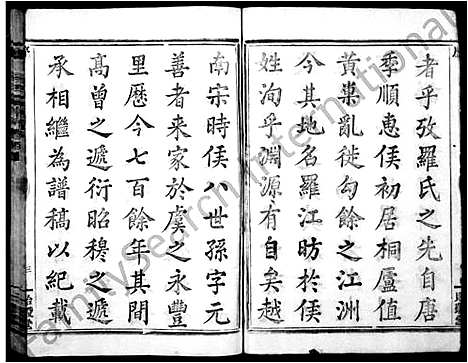 者乎攷羅氏之先自唐
季順惠侯初居桐廬值
黃巢亂徙勾餘之江洲
今其地名羅江昉於侯
姓洵乎淵源有自矣越
南宋時侯八世孫字元
善者來家於虞之永豐
里歷今七百餘年其間
高曾之遞衍昭穆之遞
承相繼為譜稿以紀載
三
FamilySearch International